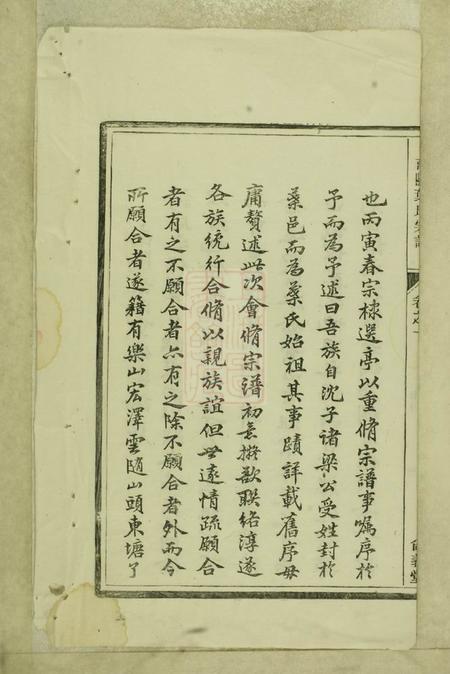 也丙寅春宗棣選亭以重脩宗譜事嘱序於
予而為予述曰吾族自沈子诸梁公受姓封於
葉邑而為葉氏始祖其事蹟詳載舊序毋
庸贅述此次會脩宗譜初意擬欲聯络淳遂
各族統行合脩以親族誼但世遠情疏願合
者有之不願合者亦有之除不願合者外而今
所願合者遂籍有樂山宏澤雲隨山頭東塘了
卷之一